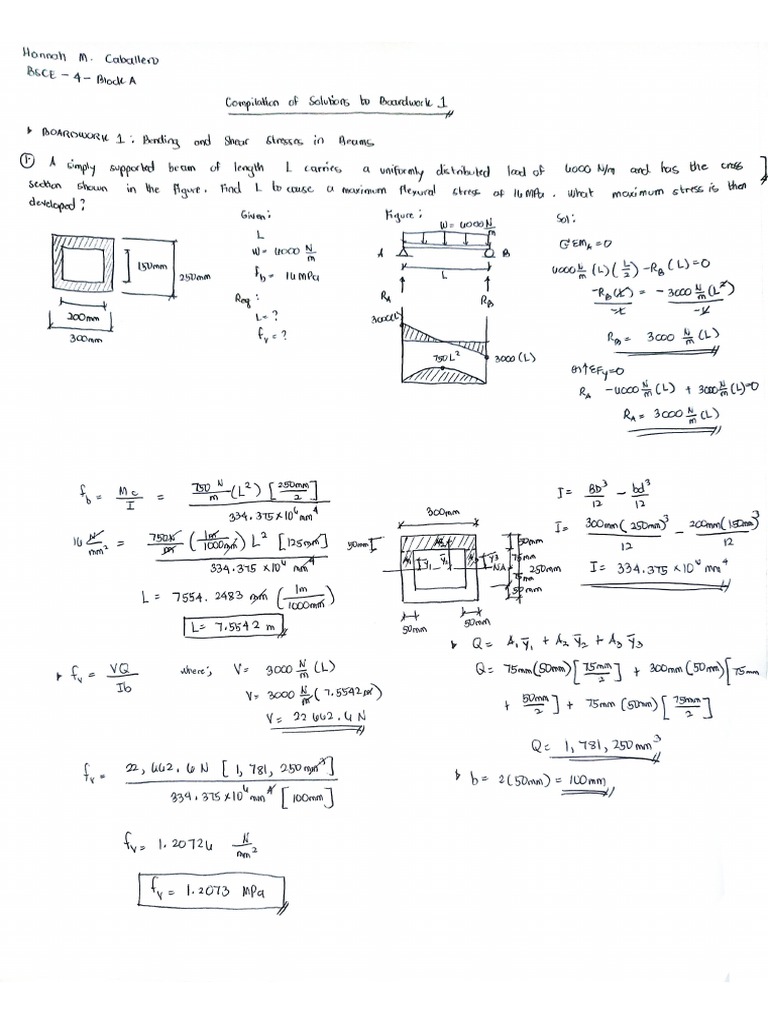 Hannah M. Caballero
BSCE - 4 - Block A
Compilation of Solutions to Boardwork 1
BOARDWORK 1: Bending and Shear Stresses in Beams
1. A simply supported beam of length L carries a uniformly distributed load of 6000 N/m and has the cross
section shown in the figure. Find L to cause a maximum flexural stress of 16 MPa. What maximum stress is then
developed?
Given:
L
W = 6000 N/m
fb = 16 MPa
Req:
L = ?
fv = ?
150mm
250mm
200mm
300mm
Figure:
W = 6000 N/m
A
B
L
RA
RB
3000(L)
750L²
3000(L)
Sol:
ΣMA = 0
6000 N/m (L)(L/2) - RB (L) = 0
-RB(L)/-L = -3000 N/m (L²)/-L
RB = 3000 N/m (L)
ΣFy = 0
RA - 6000 N/m (L) + 3000 N/m (L) = 0
RA = 3000 N/m (L)
fb = Mc/I = 750 N/m (L²) [250mm/2] / 334.375 x10⁶ mm⁴
16 N/mm² = 750N/m (1m/1000mm) L² [125mm] / 334.375 x10⁶ mm⁴
L = 7554.2483 mm (1m/1000mm)
L = 7.5542 m
300mm
50mm
50mm
75mm
N.A
250mm
75mm
50mm
ȳ1
ȳ2
ȳ3
50mm
50mm
I = BD³/12 - bd³/12
I = 300mm(250mm)³/12 - 200mm(150mm)³/12
I = 334.375 x10⁶ mm⁴
Q = A1 ȳ1 + A2 ȳ2 + A3 ȳ3
Q = 75mm(50mm)[75mm/2] + 300mm(50mm)[75mm
+ 50mm/2] + 75mm(50mm)[75mm/2]
Q = 1,781,250mm³
b = 2(50mm) = 100mm
fv = VQ/Ib
where; V = 3000 N/m (L)
V = 3000 N/m (7.5542m)
V = 22 662.6 N
fv = 22,662.6 N [1,781,250mm³] / 334.375 x10⁶ mm⁴ [100mm]
fv = 1.20726 N/mm²
fv = 1.2073 MPa